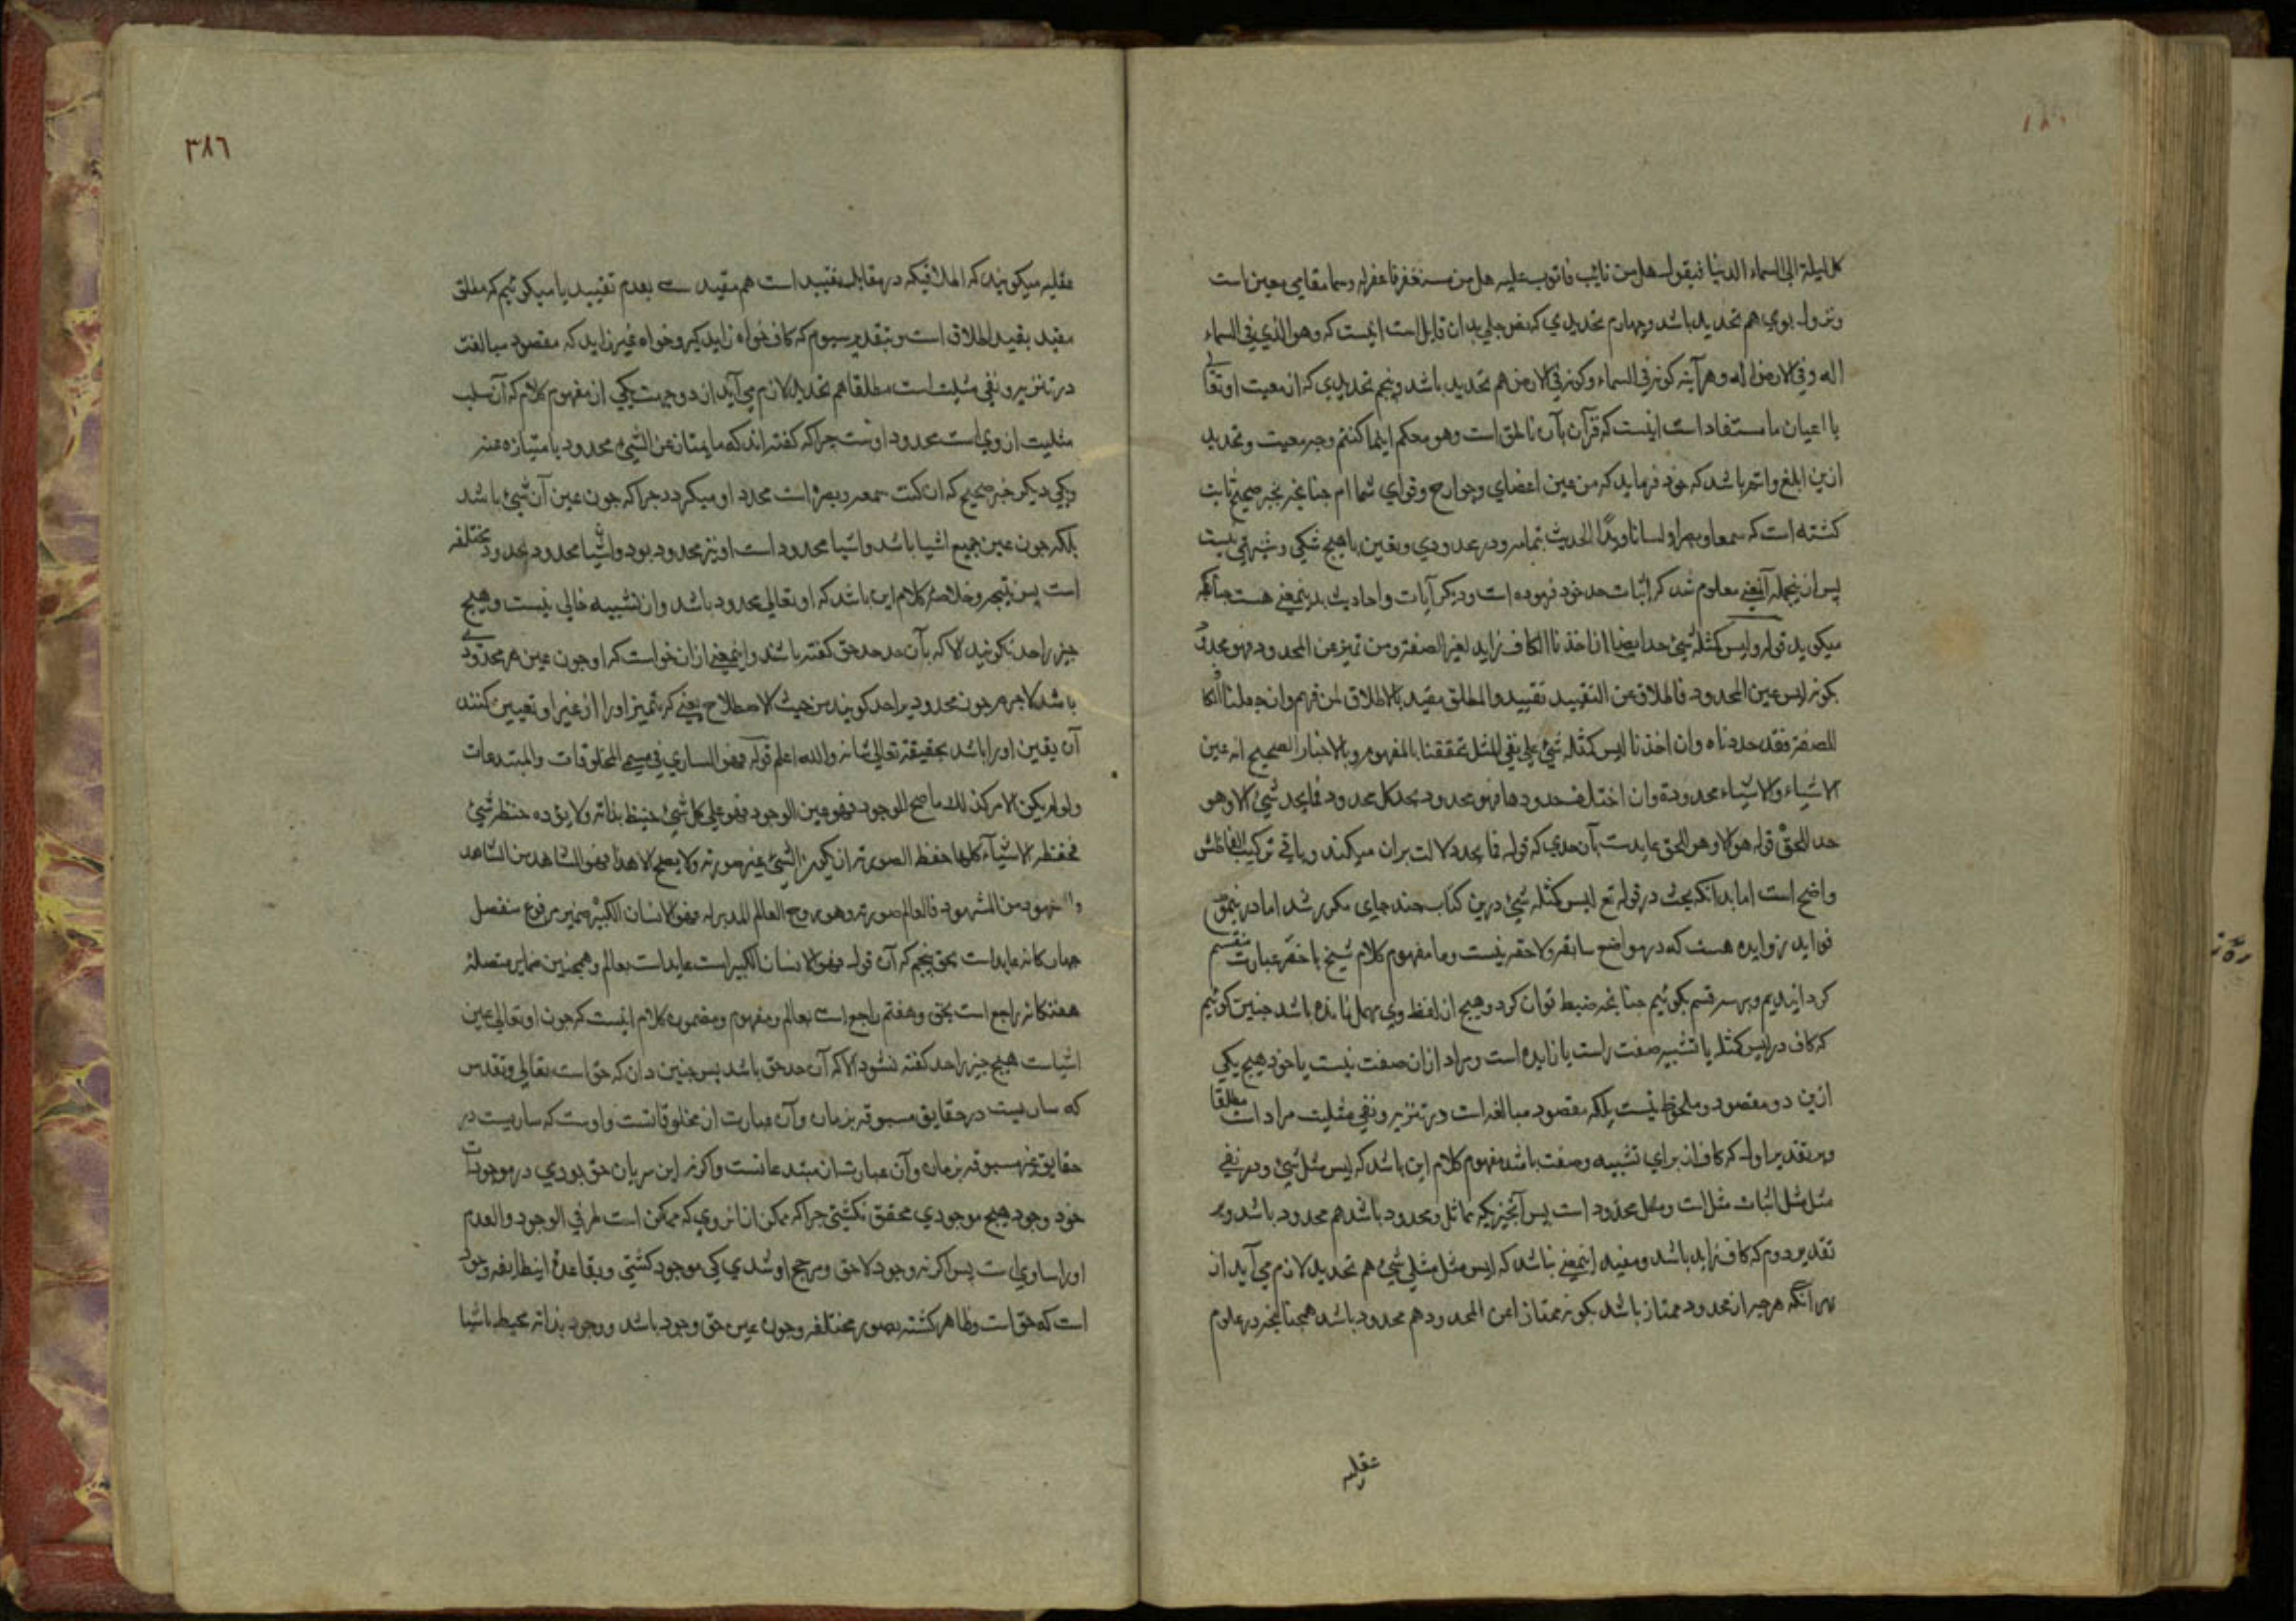 كل ليلة الى السماء الدنيا فيقول هل من تائب فاتوب عليه هل من مستغفر فاغفرله وسما مقامی معین است
ونزول بوی هم تحدید باشد وچهارم تحدیدی که نص جلی بدان قایل است اینست که وهو الذي في السماء
اله وفي الارض اله وهر آینه کونه في السماء وکونه في الارض هم تحدید باشد وپنجم تحدیدی که از معیت او تعالی
با اعیان ما مستفاد است اینست که قرآن بآن ناطق است وهو معکم اینما کنتم وجه معیت وتحدید
ازین ابلغ واتم باشد که خود فرماید که من عین اعضای وجوارح وقوای شما ام چنانچه بخبر صحیح ثابت
کشته است که سمعا وبصرا ولسانا ویدا الحدیث بتمامه ودر محدودی ویقین با هیچ شکی وشبهتی نیست
پس ازینجمله آنمعنی معلوم شد که اثبات حد خود فرموده است ودیکر آیات واحادیث بدینمعنی هست چنانکه
میکوید قوله ولیس کمثله شيء حد ایضا اذا اخذنا الکاف زاید لغیر الصفة ومن تمیز عن المحدود فهو محدود
بکونه لیس عین المحدود فالاطلاق عن التقیید تقیید والمطلق مقید بالاطلاق لمن فهم وان جعلنا الکاف
للصفة فقد حددناه وان اخذنا لیس کمثله شيء علی نفي المثل تحققنا بالمفهوم وبالاخبار الصحیح انه عین
الاشیاء والاشیاء محدودة وان اختلف حدودها فهو محدود بحد کل محدود فما یحد شيء الا وهو
حد للحق قوله هو الا وهو الحق عایدست بآن حدی که قوله فما یحد دلالت بران میکند وباقی ترکیب الفاظش
واضح است اما بدانکه بحث در قوله تع لیس کمثله شيء درین کتاب چند جای مکرر شد اما درینموضع
فواید زوایده هست که در مواضع سابقه ولاحقه نیست وما مفهوم کلام شیخ باخصر عبارت منقسم
کردانیدیم وبر سه قسم بکوئیم چنانچه ضبط توان کرد وهیچ از لفظ وی مهمل نمانده باشد چنین کوئیم
که کاف در لیس کمثله یا تشبیه صفت راست یا زایده است ومراد ازان صفت نیست یا خود هیچ یکی
ازین دو مقصود وملحوظ نیست بلکه مقصود مبالغه است در تنزیه ونفی مثلیت مراد است مطلقا
وبر تقدیر اول که کاف از برای تشبیه وصفت باشد مفهوم کلام این باشد که لیس مثل مثله شيء ودر نفی
مثل مثل اثبات مثل است ومثل محدود است پس آنچیزیکه مماثل ومحدود باشد هم محدود باشد وبر
تقدیر دوم که کاف زاید باشد ومفید اینمعنی باشد که لیس مثل مثلی شيء هم تحدید لازم می آید از
بهر آنکه هرچه از محدود ممتاز باشد بکونه ممتازا عن المحدود هم محدود باشد همچنانچه در علوم
عقلیه
٣٨٦
عقلیه میکویند که اطلاقیکه در مقابله تقیید است هم مقید بعدم تقیید یا میکوئیم که مطلق
مقید بقید اطلاق است وبتقدیر سیوم که کاف خواه زاید کیر وخواه غیر زاید که مقصود مبالغت
در تنزیه ونفی مثلیت است مطلقا هم تحدید لازم می آید از دو جهت یکی از مفهوم کلام که آن سلب
مثلیت از وی است محدود اوست چراکه کفته اند که ما یمتاز عن الشيء محدود بامتیازه عنه
ویکی دیکر خبر صحیح که ان کنت سمعه وبصره است محدد او میکردد چراکه چون عین آن شيء باشد
بلکه چون عین جمیع اشیا باشد واشیا محدود است او نیز محدود بود واشیا محدود بحدود مختلفه
است پس نتیجه وخلاصه کلام این باشد که او تعالی محدود باشد واز تشبیه خالی نیست وهیچ
چیز را حد نکویند الا که بآن حد حد حق کفته باشند واینمعنی ازان خواست که او چون عین هر محدودی
باشد لاجرم چون محدودیرا حد کویند من حیث الاصطلاح یعنی که تمیز او را از غیر او تعیین کنند
آن یقین او را باشد بحقیقته تعالی شانه والله اعلم قوله فهو الساري في مسمی المخلوقات والمبتدعات
ولو لم یکن الامر کذلك ما صح الوجود فهو عین الوجود فهو علی کل شيء حفیظ بذاته ولا یؤده حفظ شيء
فحفظه الاشیاء کلها حفظ الصورته ان یکون الشيء غیر صورته ولا یصح الا هذا فهو الشاهد من الشاهد
والمشهود من المشهود فالعالم صورته وهو روح العالم المدبر له فهو الانسان الکبیر ضمیر مرفوع منفصل
چهارکانه عایداست بحق پنجم که آن قوله فهو الانسان الکبیر است عایداست بعالم وهمچنین ضمایر متصله
هفتکانه راجع است بحق وهفتم راجع است بعالم ومفهوم ومضمون کلام اینست که چون او تعالی عین
اشیاست هیچ چیز را حد کفته نشود الا که آن حد حق باشد پس چنین دان که حق است تعالی وتقدس
که ساریست در حقایق مسبوقه بزمان وآن عبارت از مخلوقاتست واوست که ساریست در
حقایق غیر مسبوقه بزمان وآن عبارت از مبتدعاتست واکر نه این سریان حق بودی در موجودات
خود وجود هیچ موجودی محقق نکشتی چراکه ممکن از انروی که ممکن است طرفي الوجود والعدم
او را مساوی است پس اکر نه وجود لاحق ومرجح او شدی کی موجود کشتی وبقاعدۀ اینطایفه وجود
است که حق است وظاهر کشته بصور مختلفه وچون عین حق وجود باشد ووجود بذاته محیط باشیا